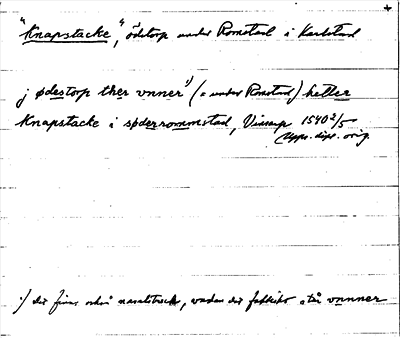 "Knapstacke", ödetorp under Romstad i Karlstad
j ødestorp ther vnner¹) (= under Romstad) heller
Knapstacke i søderrommstad, Vinsarp 1540 2/5
Upps. dipl. orig.
¹) der finns också nasalstreck, vadan det faktiskt står vnnner